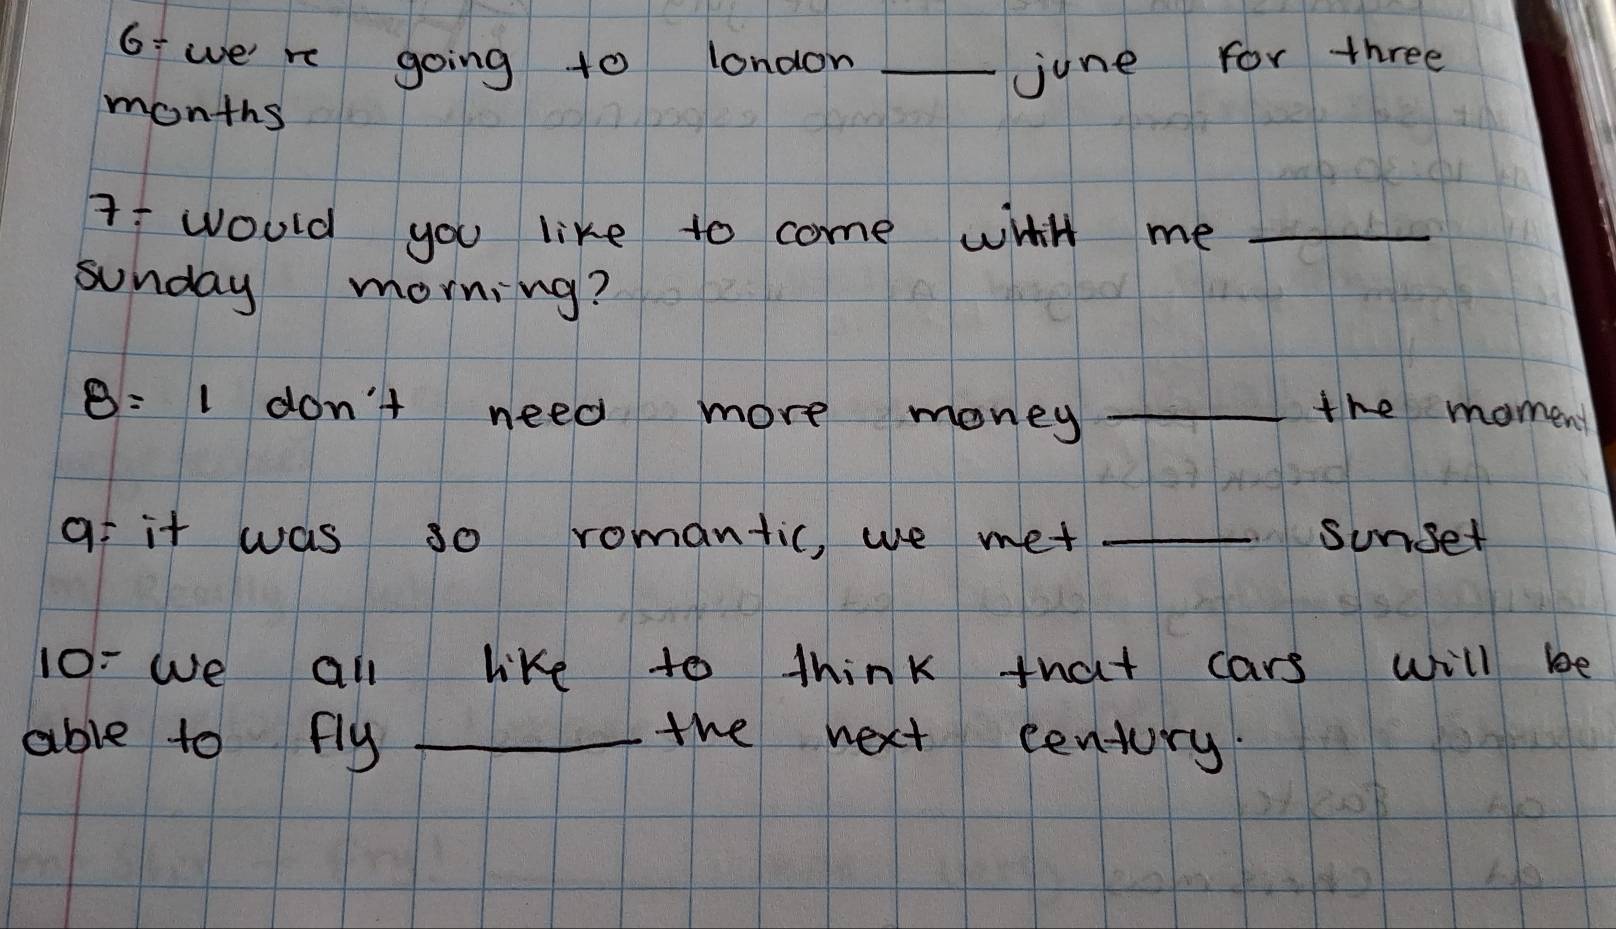 6- we're going to london ____ june for three
months
7- would you like to come with me ____
sunday morning?
8= I don't need more money ____ the moment
9- it was so romantic, we met ____ sunset
10- we all like to think that cars will be
able to fly ____ the next century.